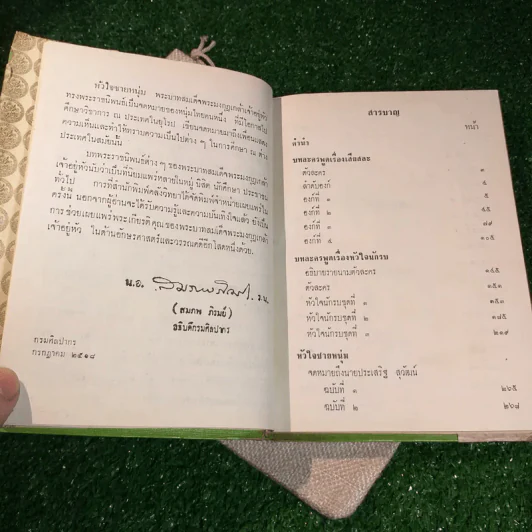 หัวใจชายหนุ่ม พระบาทสมเด็จพระมงกุฎเกล้าเจ้าอยู่หัว
ทรงพระราชนิพนธ์เป็นจดหมายของหนุ่มไทยคนหนึ่ง ที่มีโอกาสไป
ศึกษาวิชาการ ณ ประเทศในยุโรป เขียนจดหมายมาถึงเพื่อนแสดง
ความเห็นและทำให้ทราบความเป็นไปต่าง ๆ ในการศึกษา ณ ต่าง
ประเทศในสมัยนั้น
บทพระราชนิพนธ์ต่าง ๆ ของพระบาทสมเด็จพระมงกุฎเกล้า
เจ้าอยู่หัวนับว่าเป็นที่นิยมแพร่หลายในหมู่ นิสิต นักศึกษา ประชาชน
ทั่วไป การที่สำนักพิมพ์คลังวิทยาได้จัดพิมพ์จำหน่ายเผยแพร่ใน
ครั้งนี้ นอกจากผู้อ่านจะได้รับความรู้และความบันเทิงใจแล้ว ยังเป็น
การช่วยเผยแพร่พระเกียรติคุณของพระบาทสมเด็จพระมงกุฎเกล้า
เจ้าอยู่หัว ในด้านอักษรศาสตร์และวรรณคดีอีกโสดหนึ่งด้วย.
น.อ. สมภพ ภิรมย์ ร.น.
(สมภพ ภิรมย์)
อธิบดีกรมศิลปากร
กรมศิลปากร
กรกฎาคม ๒๕๑๘
สารบาญ
หน้า
คำนำ
บทละครพูดเรื่องเสียสละ
ตัวละคร ๓
ลำดับองก์ ๔
องก์ที่ ๑ ๕
องก์ที่ ๒ ๔๕
องก์ที่ ๓ ๗๙
องก์ที่ ๔ ๑๐๕
บทละครพูดเรื่องหัวใจนักรบ
อธิบายรายนามตัวละคร ๑๔๕
ตัวละคร ๑๕๑
หัวใจนักรบชุดที่ ๑ ๑๕๓
หัวใจนักรบชุดที่ ๒ ๑๘๕
หัวใจนักรบชุดที่ ๓ ๒๑๙
หัวใจชายหนุ่ม
จดหมายถึงนายประเสริฐ สุวัฒน์
ฉบับที่ ๑ ๒๖๕
ฉบับที่ ๒ ๒๖๘